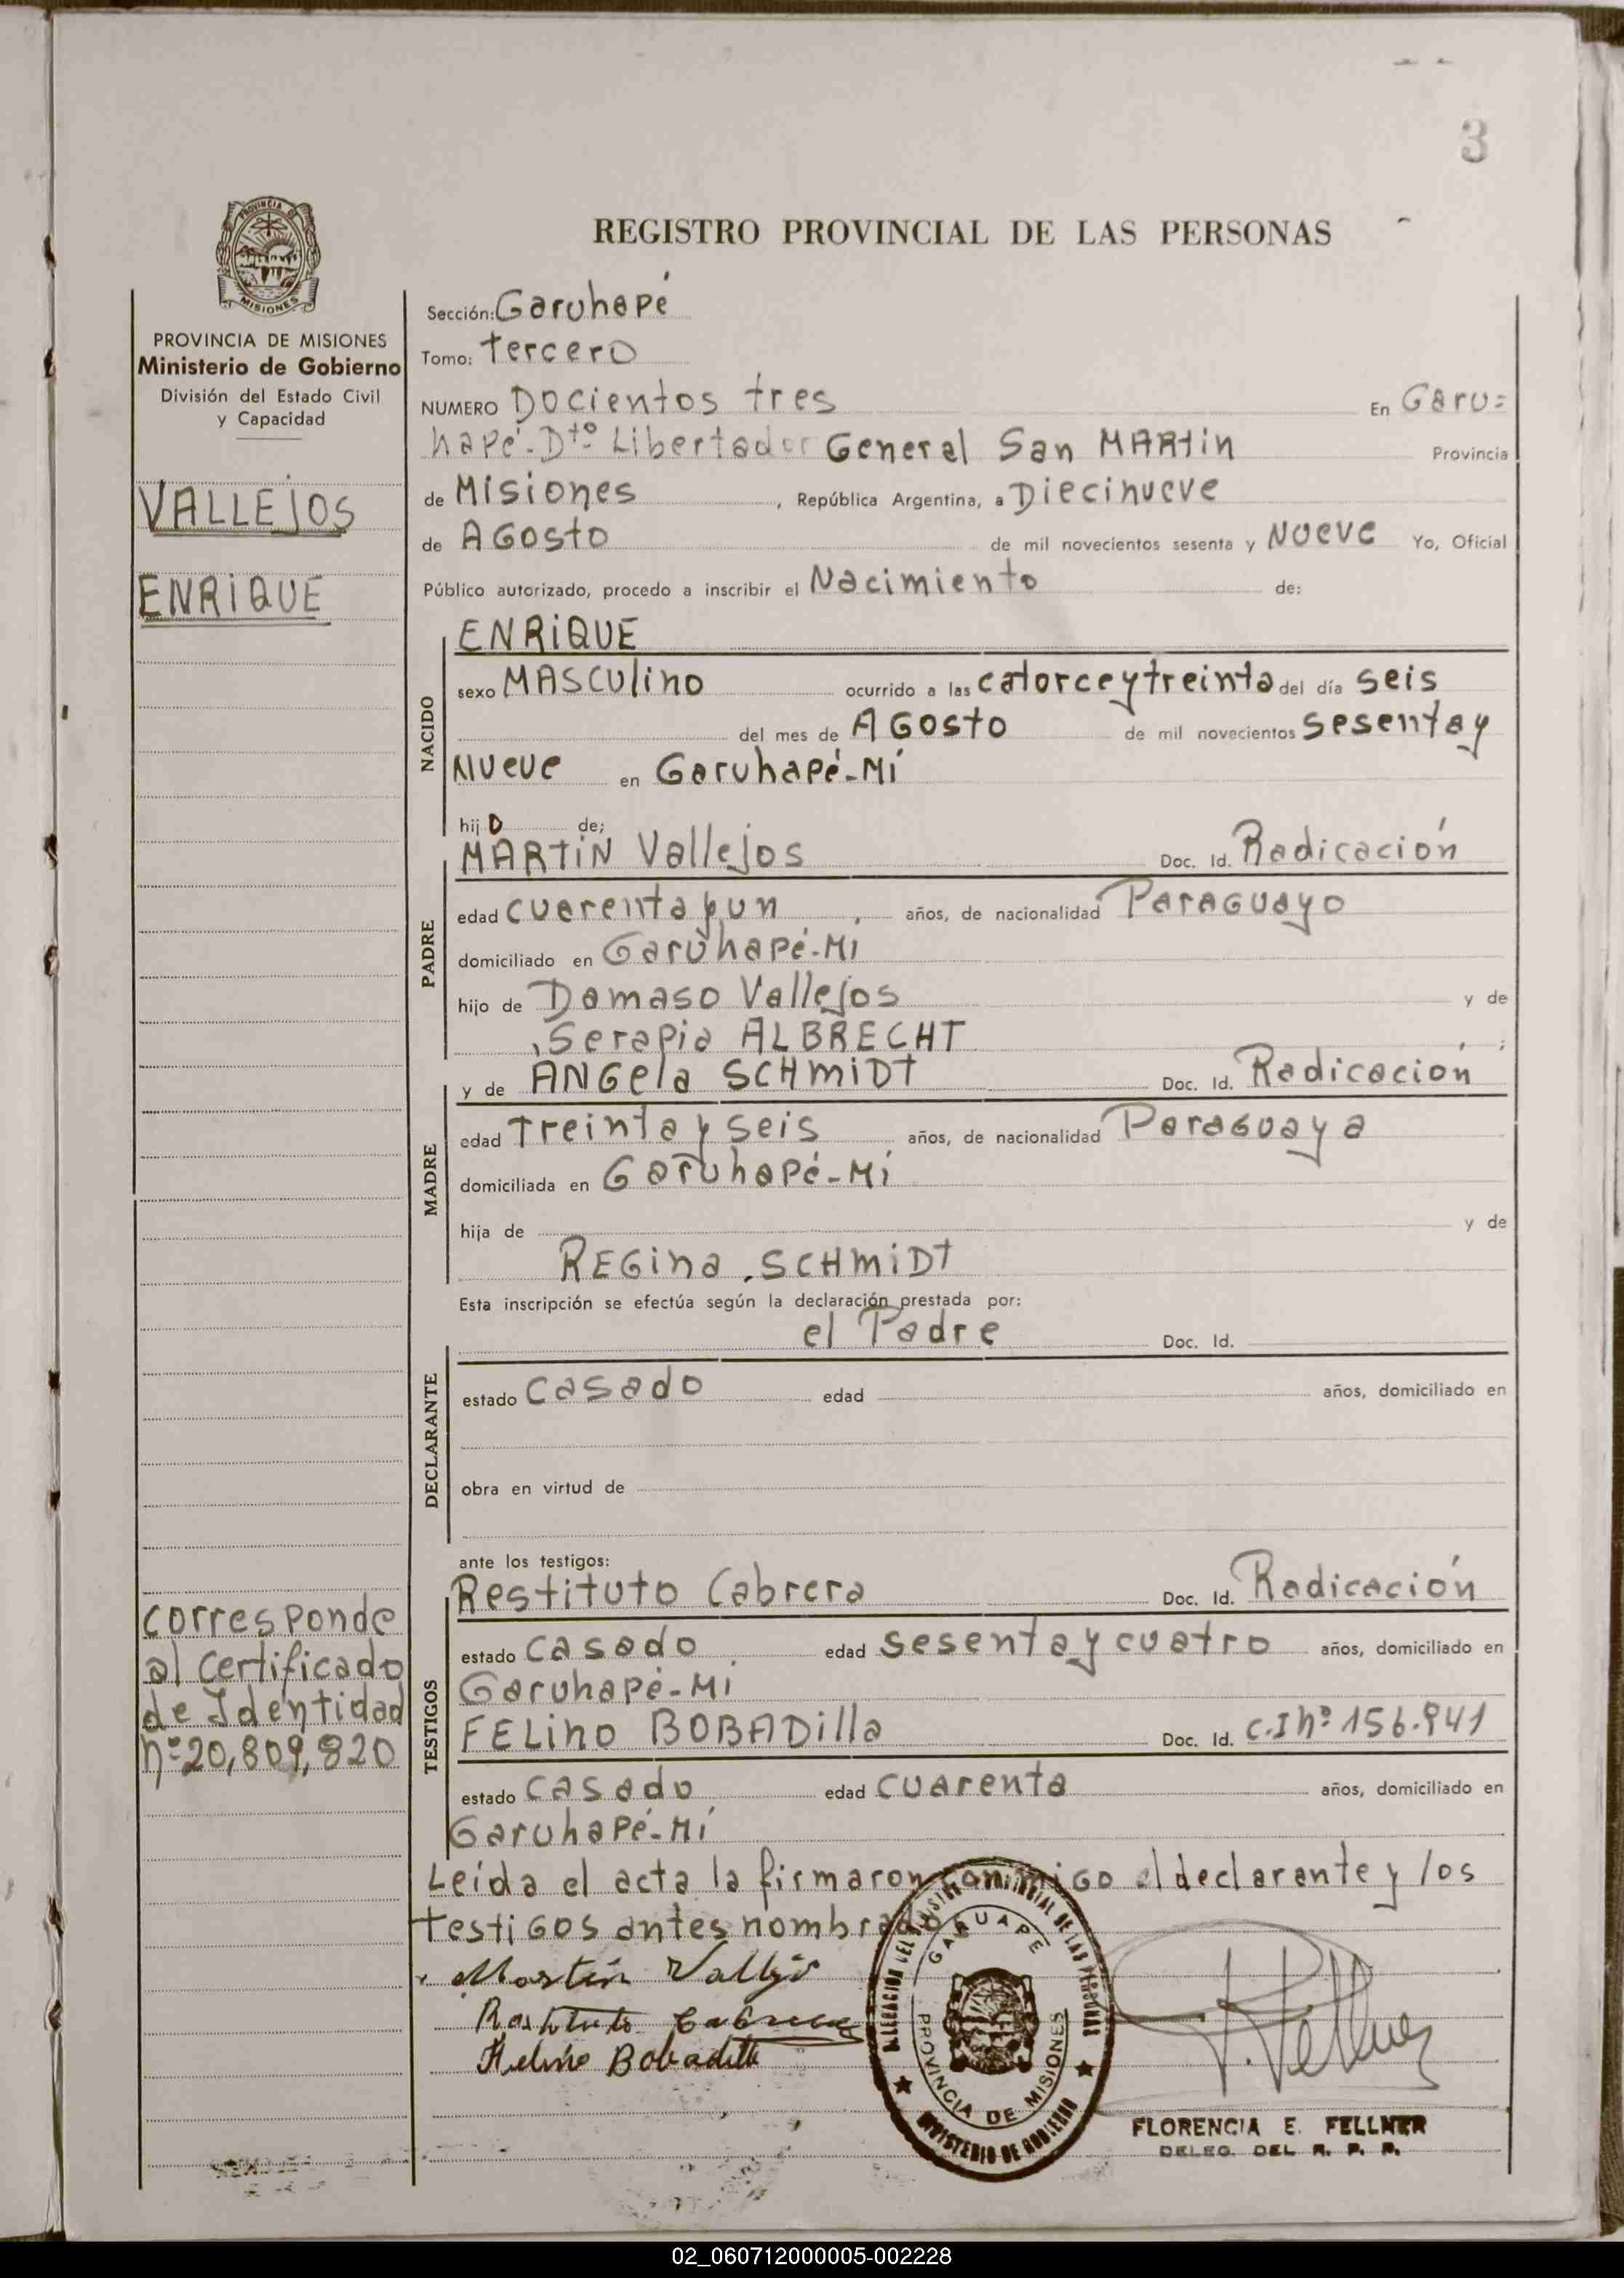 3
REGISTRO PROVINCIAL DE LAS PERSONAS
PROVINCIA DE
MISIONES
PROVINCIA DE MISIONES
Ministerio de Gobierno
División del Estado Civil
y Capacidad
VALLEJOS
ENRIQUE
Sección: Garuhapé
Tomo: Tercero
NUMERO Docientos tres En Garu=
hapé-Dtº Libertador General San MARTiN Provincia
de Misiones, República Argentina, a Diecinueve
de AGosto de mil novecientos sesenta y Nueve Yo, Oficial
Público autorizado, procedo a inscribir el Nacimiento de:
NACIDO
ENRIQUE
sexo MASCUlino ocurrido a las catorce y treinta del día seis
del mes de AGosto de mil novecientos sesenta y
Nueve en Garuhapé-Mí
hijo de;
PADRE
MARTiN Vallejos Doc. Id. Radicación
edad cuarenta y un, años, de nacionalidad Paraguayo
domiciliado en Garuhapé-Mí
hijo de Damaso Vallejos y de
Serapia ALBRECHT ;
MADRE
y de ANGela SCHmiDt Doc. Id. Radicación
edad Treinta y seis años, de nacionalidad Paraguaya
domiciliada en Garuhapé-Mí
hija de y de
REGina SCHmiDt
Esta inscripción se efectúa según la declaración prestada por:
DECLARANTE
el Padre Doc. Id.
estado casado edad años, domiciliado en
obra en virtud de
ante los testigos:
TESTIGOS
Restituto Cabrera Doc. Id. Radicación
estado casado edad sesenta y cuatro años, domiciliado en
Garuhapé-Mí
FELino BOBADilla Doc. Id. C.I nº 156.941
estado casado edad cuarenta años, domiciliado en
Garuhapé-Mí
corresponde
al certificado
de Identidad
nº 20,809,820
Leída el acta la firmaron conmigo el declarante y los
testigos antes nombrados
Martin Vallejo
Restituto Cabrera
Felino Bobadilla
DELEGACION DEL REGISTRO PROVINCIAL DE LAS PERSONAS
GARUAPE
PROVINCIA DE MISIONES
MINISTERIO DE GOBIERNO
F. Fellner
FLORENCIA E. FELLNER
DELEG. DEL R. P. P.
02_060712000005-002228